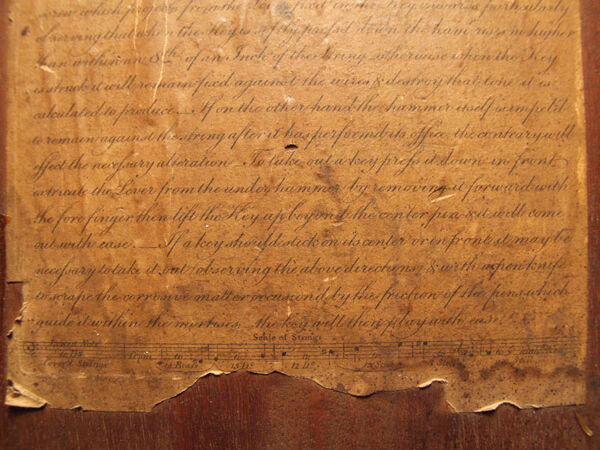 screw which projects from the
observing that when the Key is softly press'd down the ham.r rises no higher
than within an 8th of an Inch of the string, otherwise when the Key
is struck it will remain fixed against the wires & destroy that tone it is
calculated to produce — If on the other hand the hammer itself is impell'd
to remain against the string after it has perform'd its office, the contrary will
effect the necessary alteration — To take out a key press it down in front
extricate the Lever from the under hammer by removing it forward with
the fore finger then lift the Key up beyond the center pin & it will come
out with ease. — If a key should stick on its center or in front it may be
necessary to take it out (observing the above directions) & with a pen knife
to scrape the corrosive matter occasion'd by the friction of the pins which
guide it within the mortises, the key will then play with ease.
Scale of Strings
Lowest Note
to
Cover'd Strings